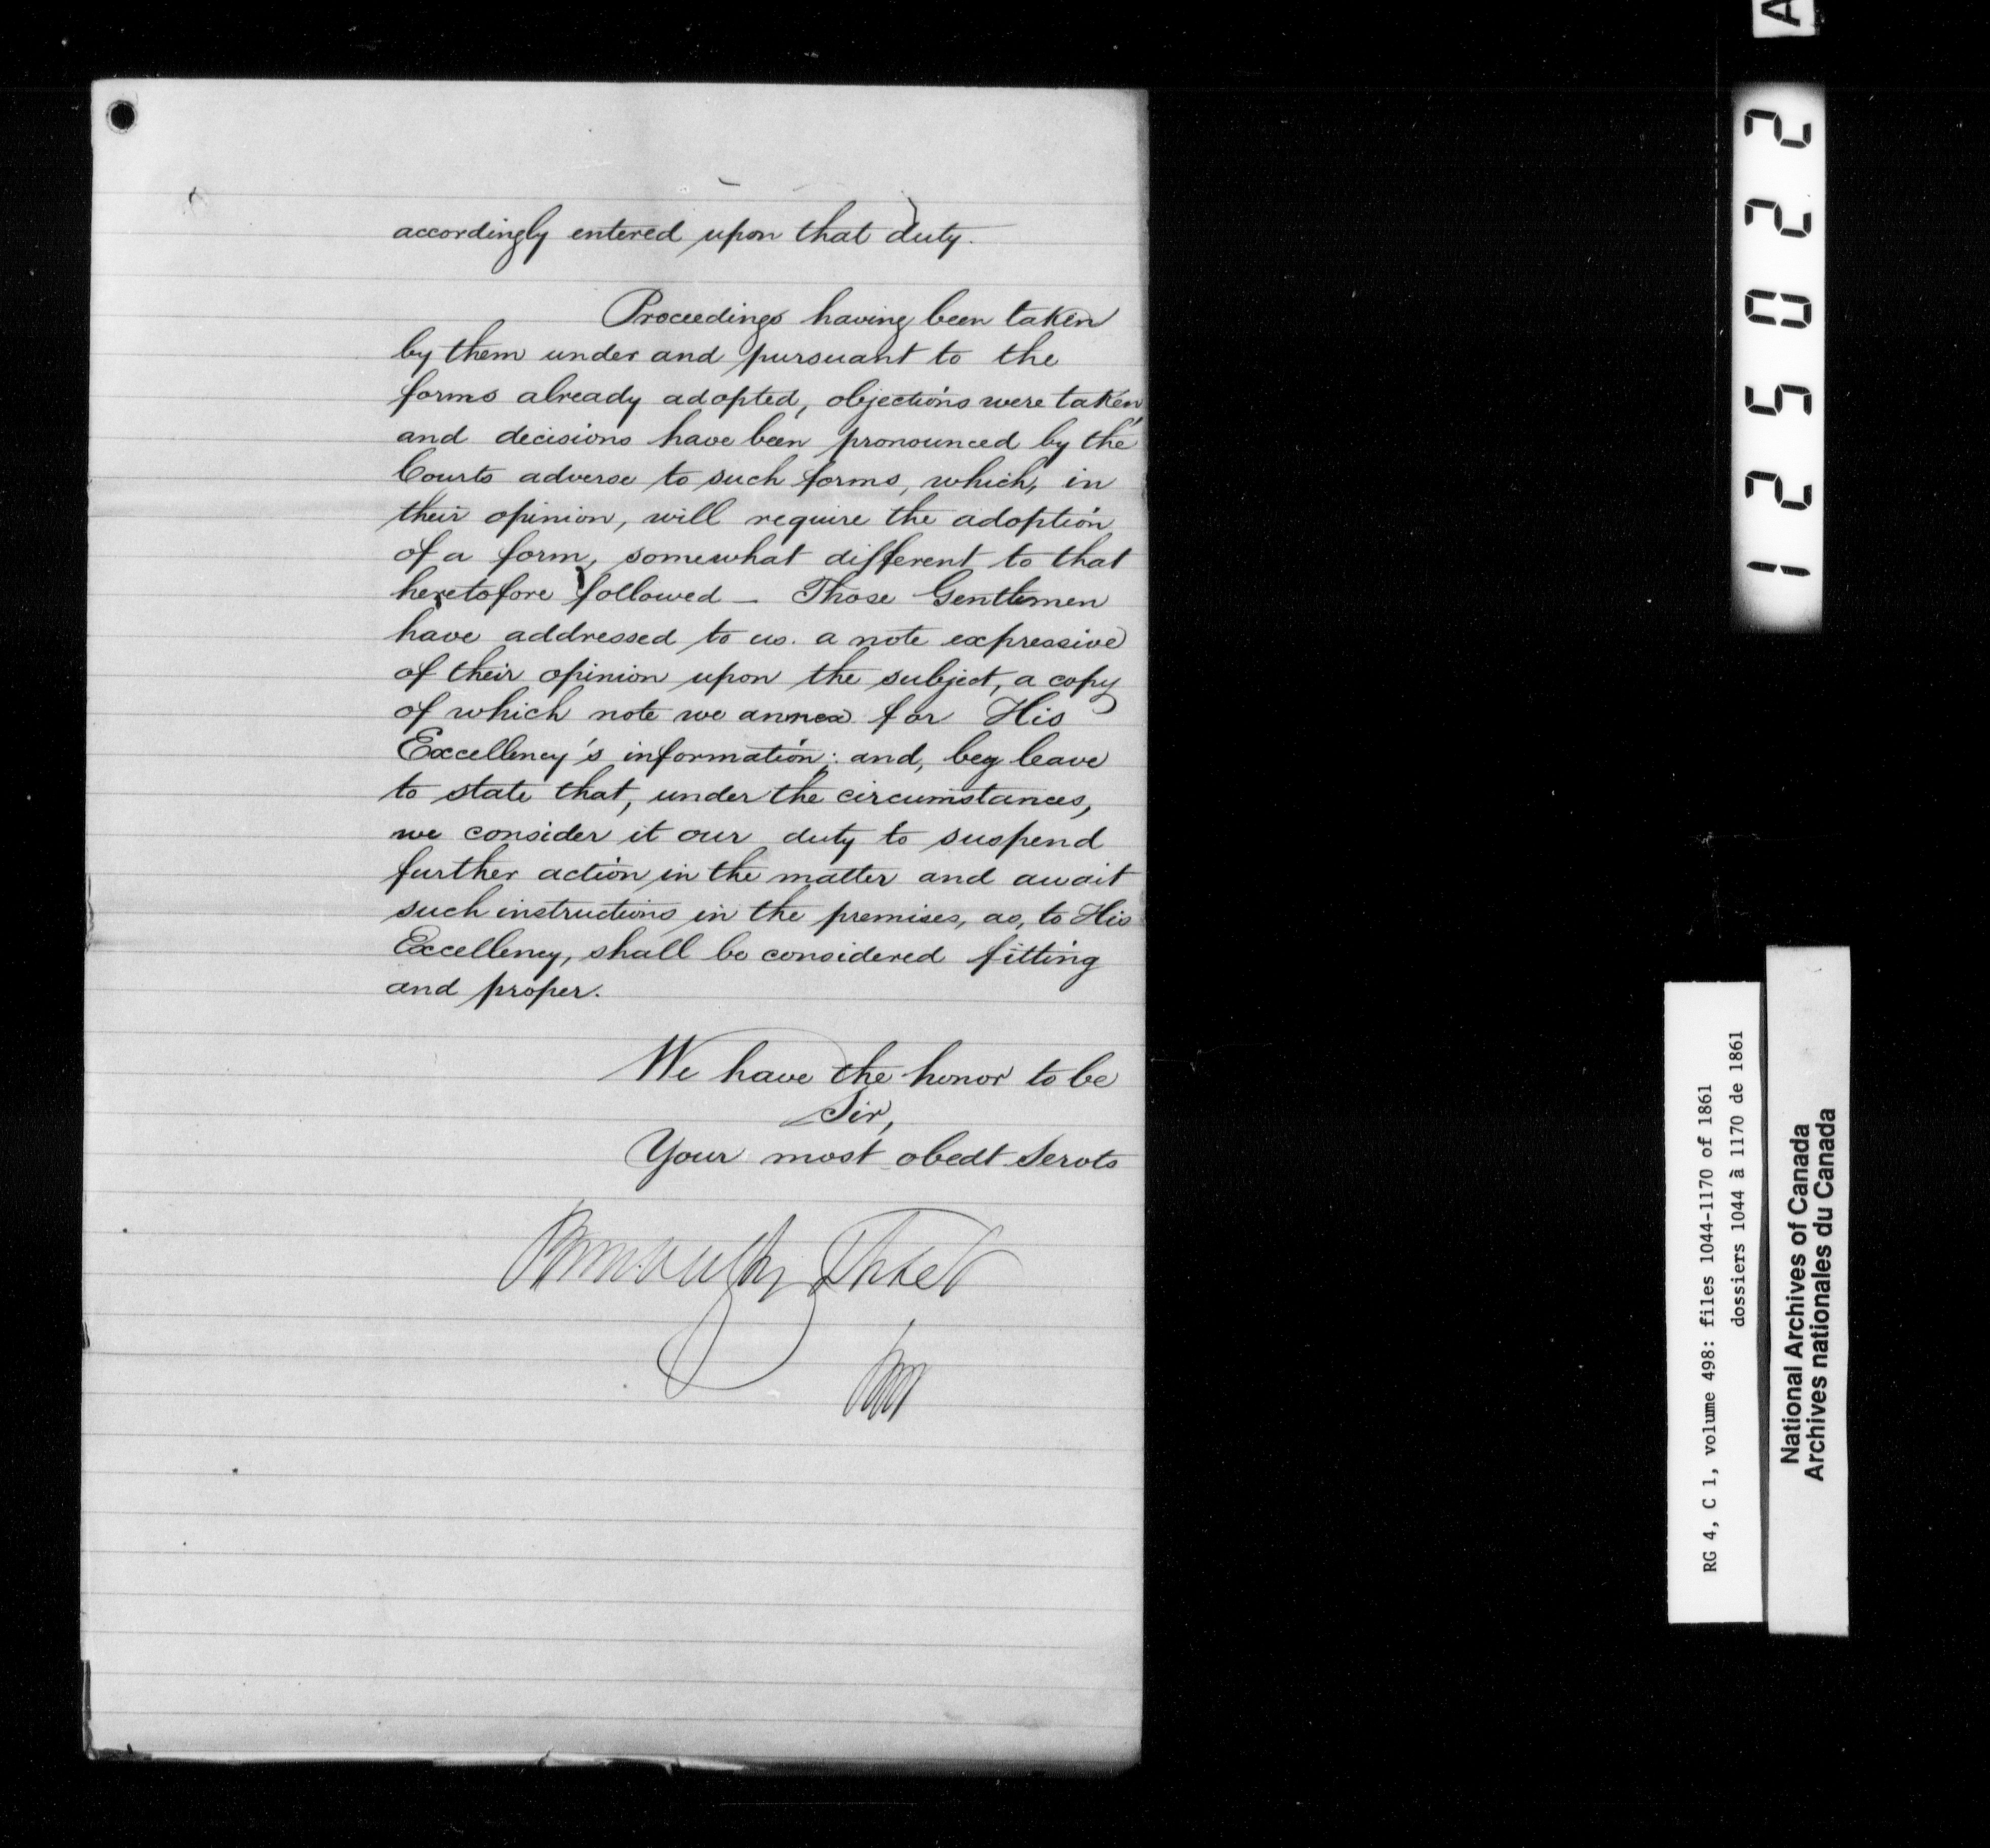 accordingly entered upon that duty.
Proceedings having been taken
by them under and pursuant to the
forms already adopted, objections were taken,
and decisions have been pronounced by the
Courts adverse to such forms, which, in
their opinion, will require the adoption
of a form, somewhat different to that
heretofore followed — Those Gentlemen
have addressed to us. a note expressive
of their opinion upon the subject, a copy
of which note we annex for His
Excellency's information; and, beg leave
to state that, under the circumstances,
we consider it our duty to suspend
further action in the matter and await
such instructions in the premises, as, to His
Excellency, shall be considered fitting
and proper.
We have the honor to be
Sir,
Your most obedt Servts
A
125022
RG 4, C 1, volume 498: files 1044-1170 of 1861
dossiers 1044 à 1170 de 1861
National Archives of Canada
Archives nationales du Canada